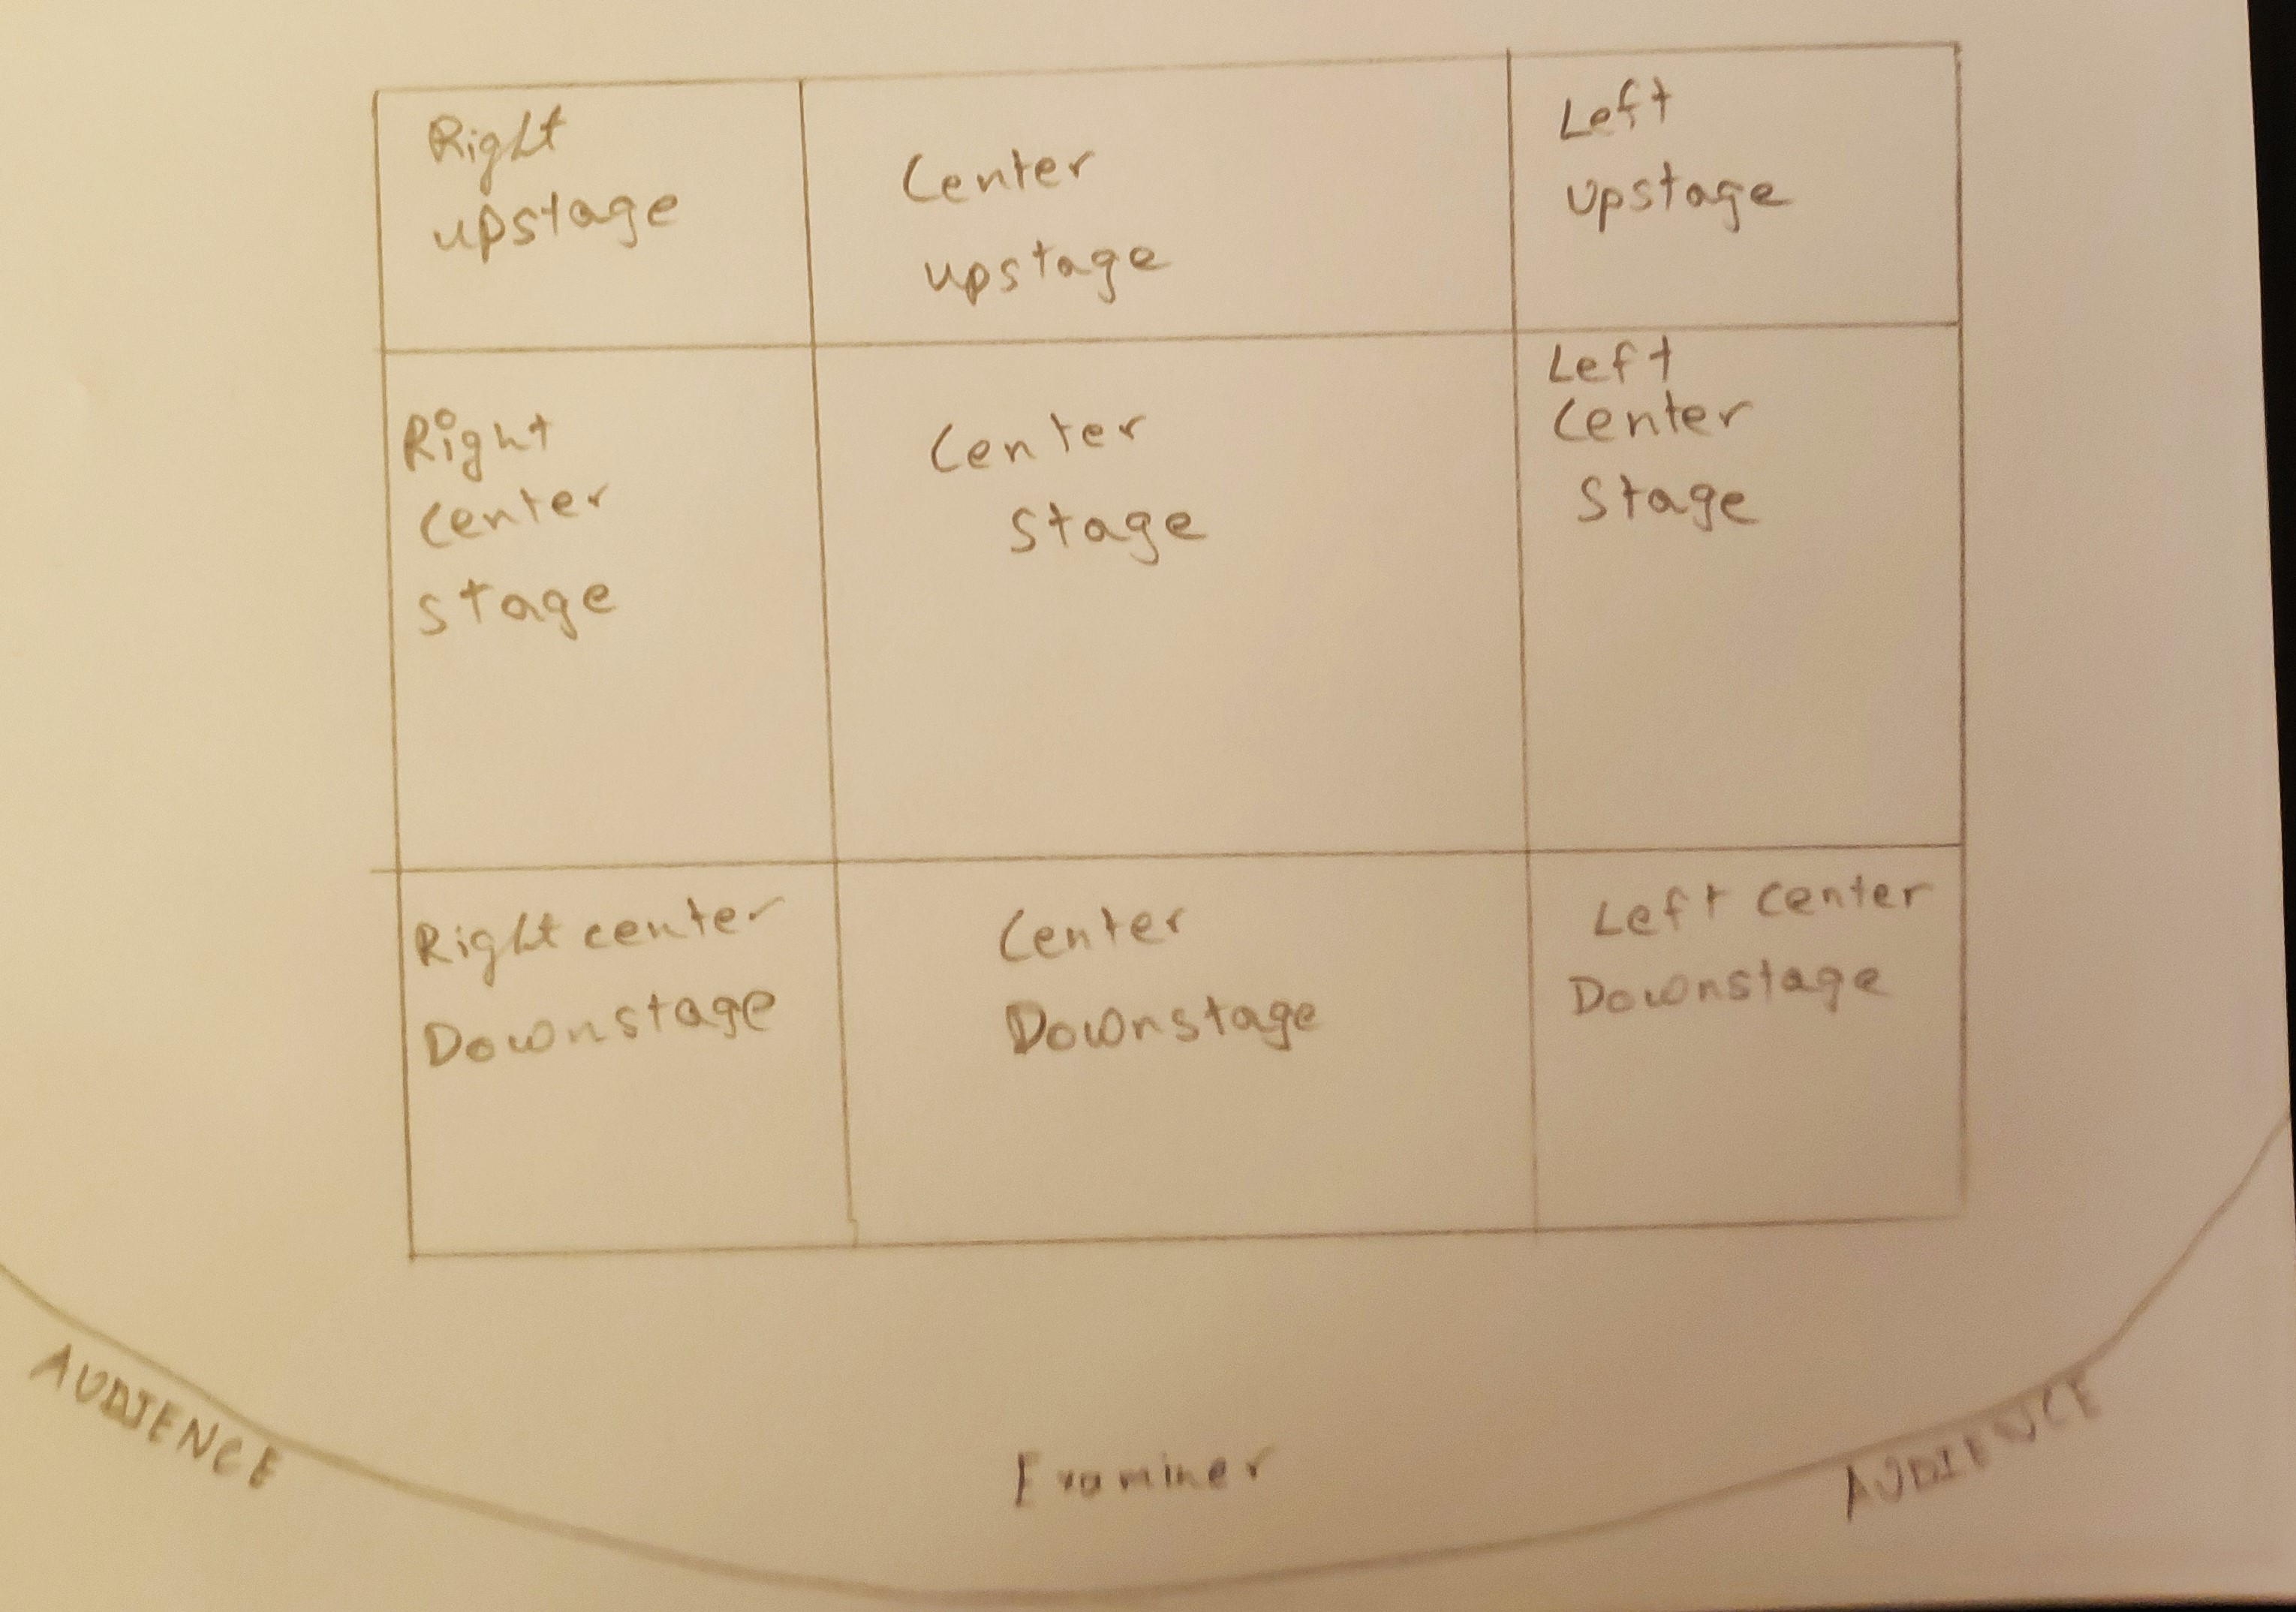 Right
upstage
Center
upstage
Left
Upstage
Right
Center
stage
Center
Stage
Left
Center
Stage
Right center
Downstage
Center
Downstage
Left Center
Downstage
AUDIENCE
Examiner
AUDIENCE